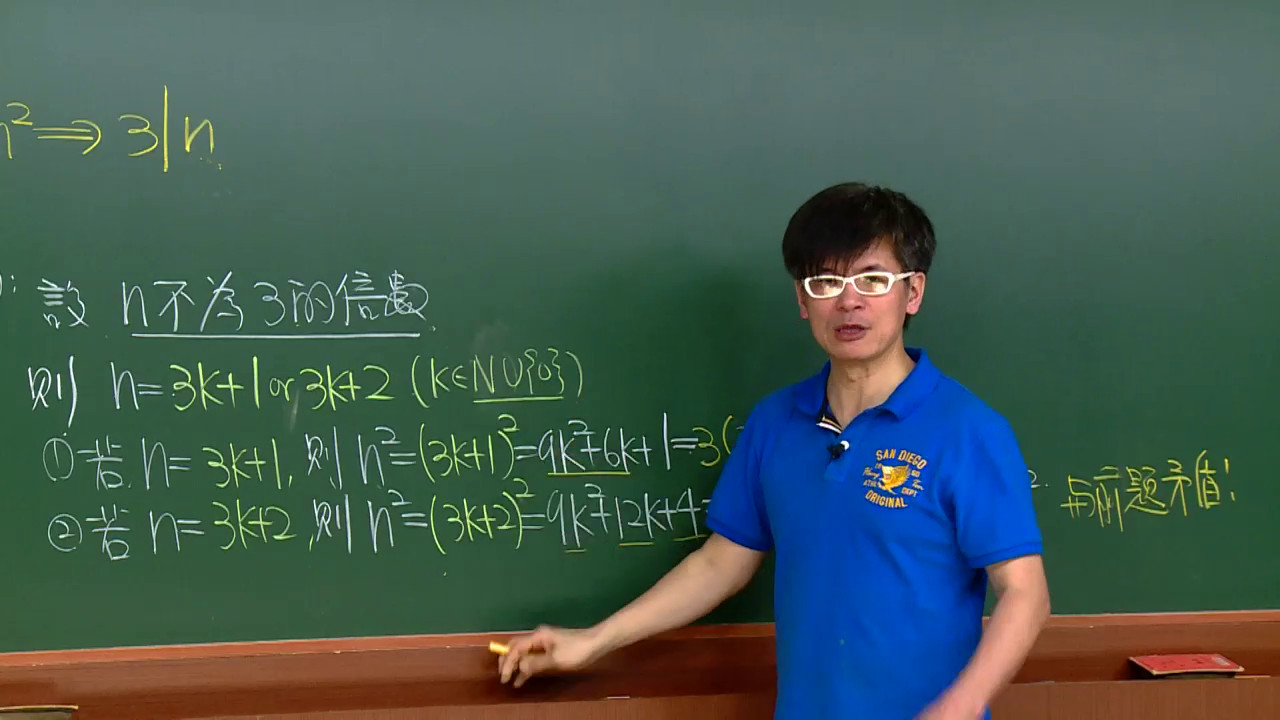 n²⇒3|n
設 n不為3的倍數
則 n=3k+1 or 3k+2 (k∈N∪{0})
①若 n=3k+1, 則 n²=(3k+1)²=9k²+6k+1=3(
②若 n=3k+2, 則 n²=(3k+2)²=9k²+12k+4=
2. 与前題矛盾!
SAN DIEGO
ORIGINAL